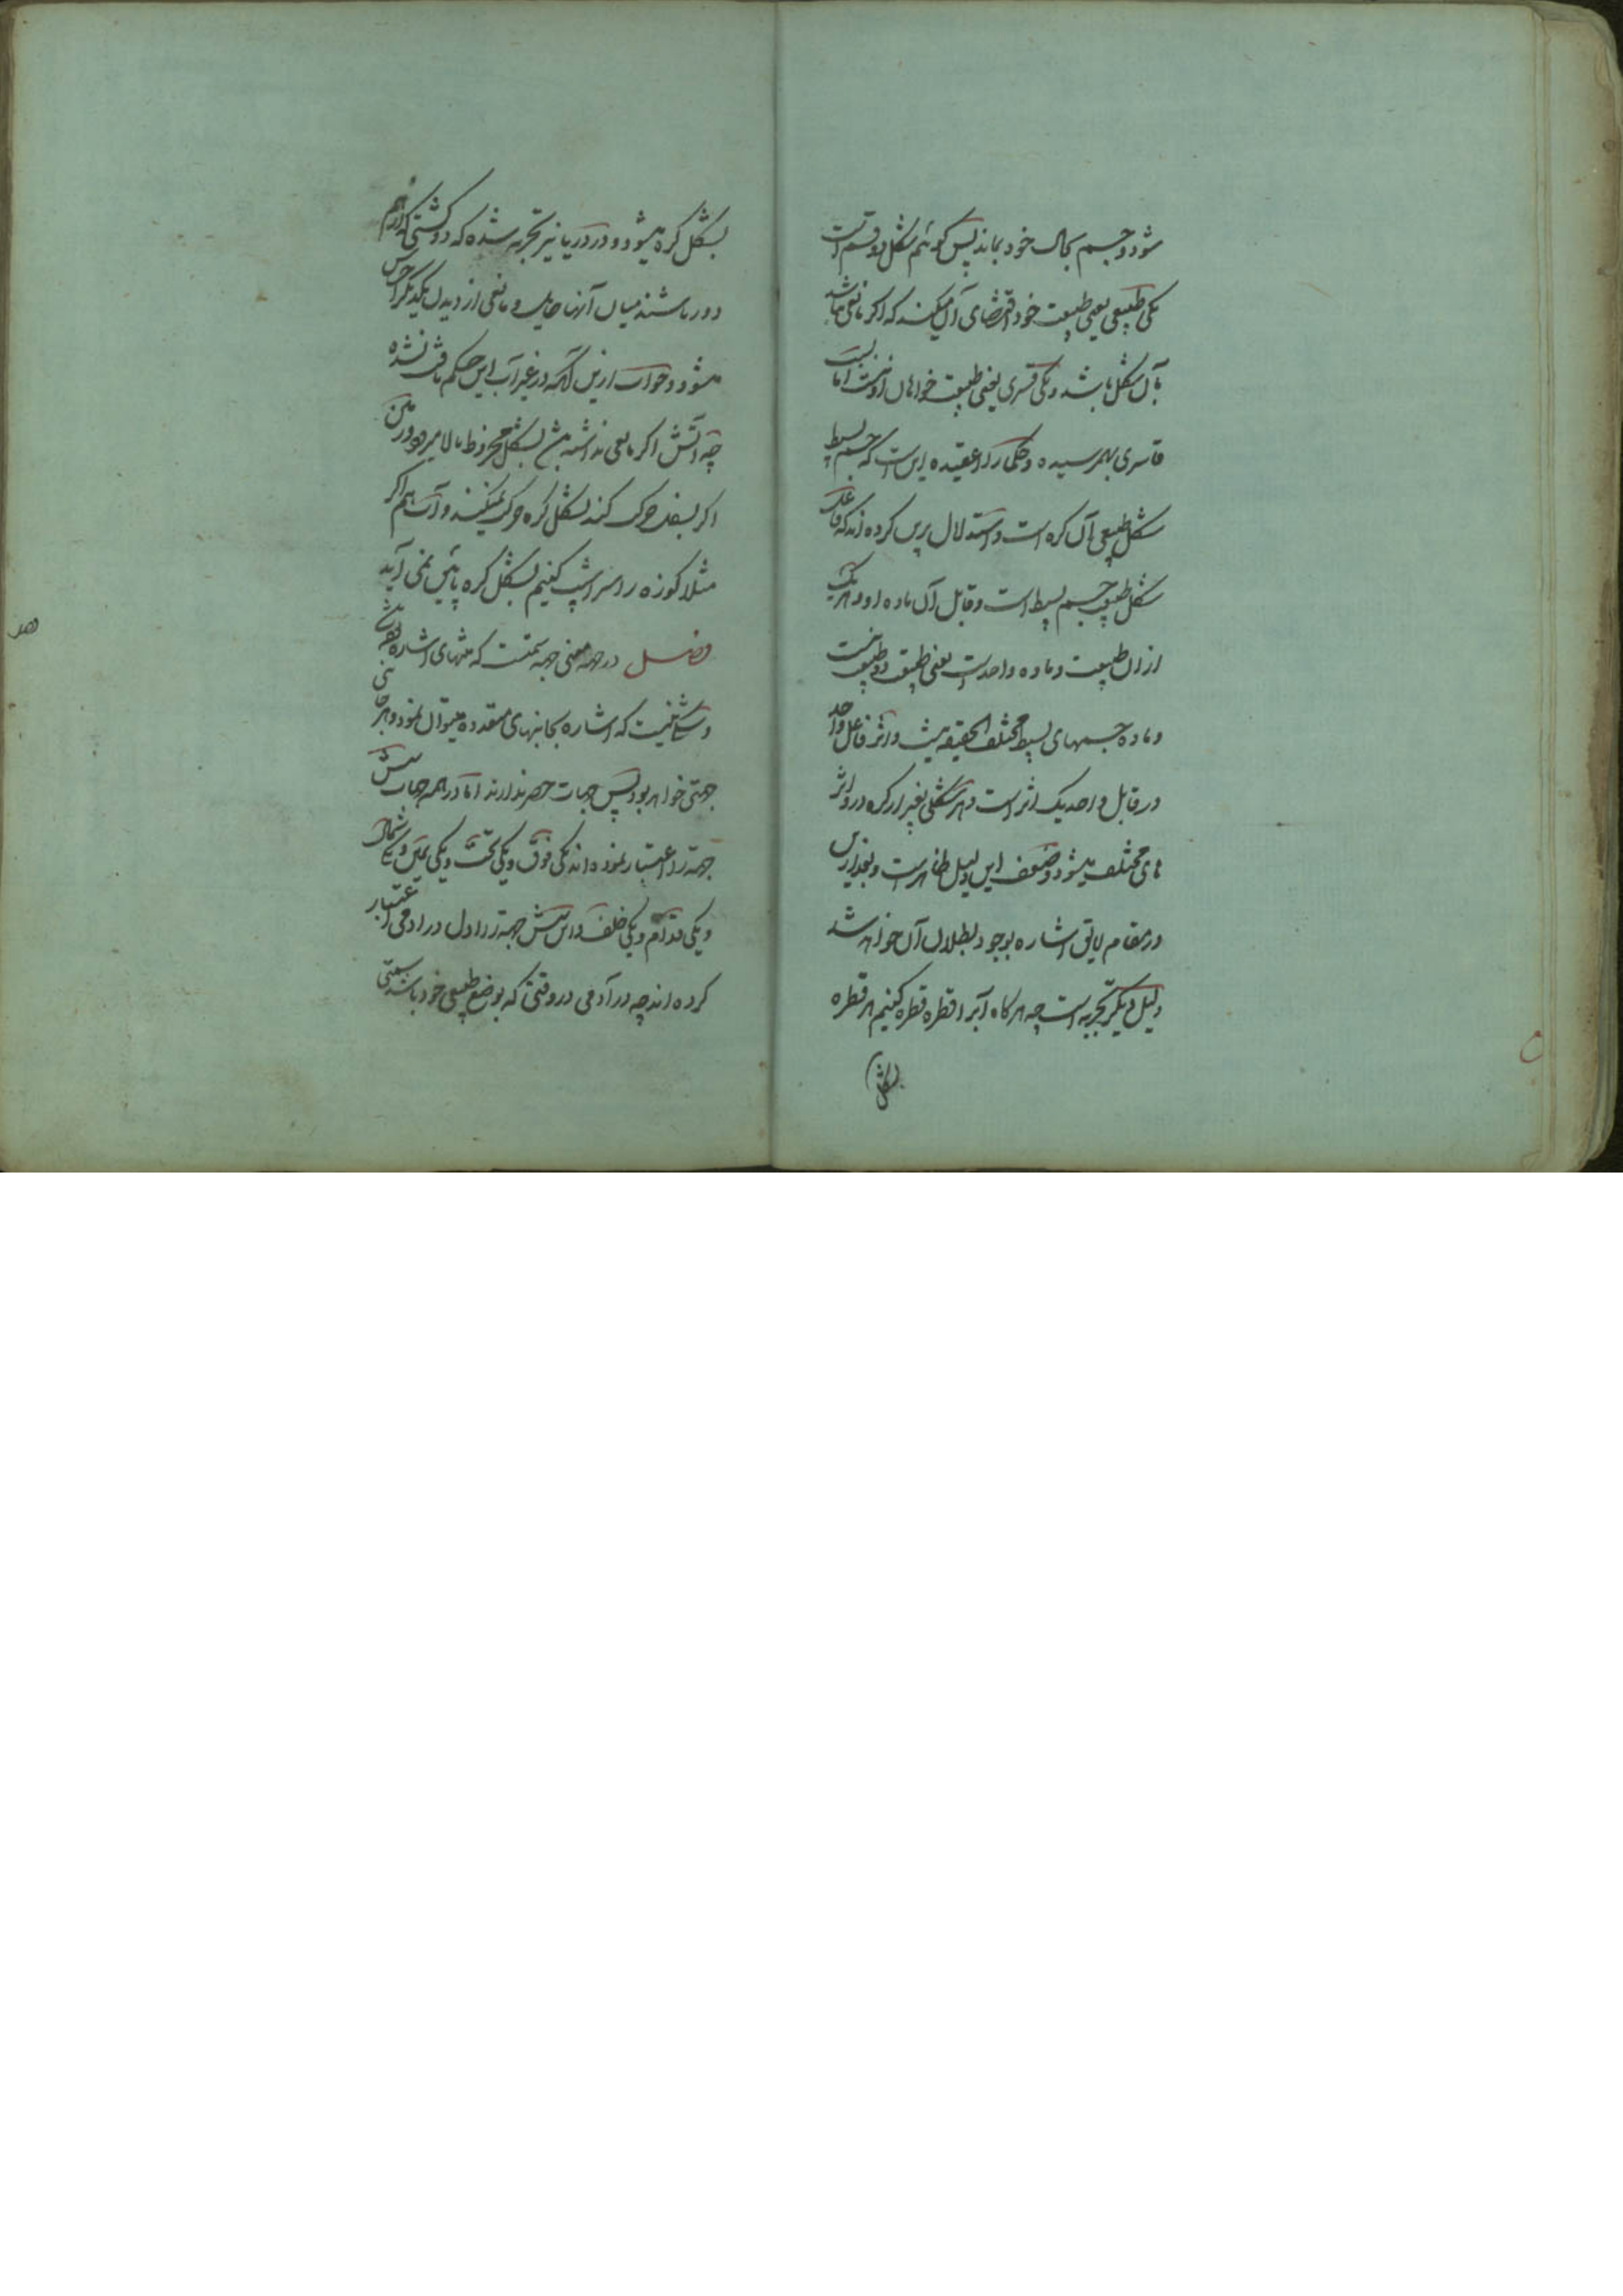 شود و جسم بحال خود بماند پس گوئیم شکل دو قسم است
یکی طبیعی یعنی طبیعت خود اقتضای آن میکند که اگر مانعی نباشد
بآن شکل باشد و یکی قسری یعنی طبیعت خواهان او نیست اما بسبب
قاسری بهمرسیده و حکما را عقیده این است که جسم بسیط
شکل طبیعی آن کره است و استدلال برین کرده اند که فاعل
شکل طبیعت جسم بسیط است و قابل آن ماده او و هر یک
ازان طبیعت و ماده واحد است یعنی طبیعت دو طبیعت نیست
و ماده جسمهای بسیط مختلف الحقیقه نیست و اثر فاعل واحد
در قابل واحد یک اثر است و هر شکلی بغیر از کره درو اثر
های مختلف میشود و ضعف این دلیل ظاهر است و بعد ازین
در مقام لایق اشاره بوجود بطلان آن خواهد شد
دلیل دیگر تجربه است چه هرگاه آبرا قطره قطره کنیم هر قطره
بشکل
بشکل کره میشود و در دریا نیز تجربه شده که دو کشتی که از هم
دور باشند میان آنها حایل و مانعی از دیدن یکدیگر
میشود و جواب ازین آنکه در غیر آب این حکم یافت نشده
چه آتش اگر مانعی نداشته بشکل مخروط بالا میرود
اگر حرکت کند بشکل کره حرکت نمیکند و آب هم اگر
مثلا کوزه را سراشیب کنیم بشکل کره پائین نمی آید
فصل در جهة معنی جهة سمتست که منتهای اشاره
و شک نیست که اشاره بجانبهای متعدده میتوان نمود و هر جانبی
جهتی خواهد بود پس جهات حصر ندارند اما در همه جهات شش
جهة را اعتبار نموده اند یکی فوق و یکی تحت و یکی یمین و یکی شمال
و یکی قدام و یکی خلف و این شش جهة را اول در ادمی اعتبار
کرده اند چه در آدمی در وقتی که بوضع طبیعی خود باشد